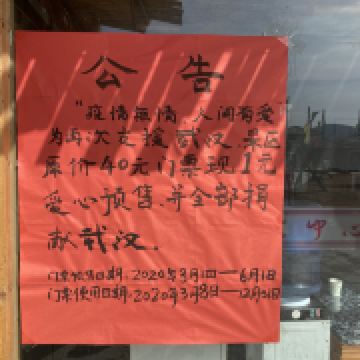 公告
"疫情無情,人间有爱"
为再次支援武汉.景区
原价40元门票现1元
爱心预售.并全部捐
献武汉.
门票预售日期.2020年3月1日——6月1日
门票使用日期.2020年3月8日——12月31日